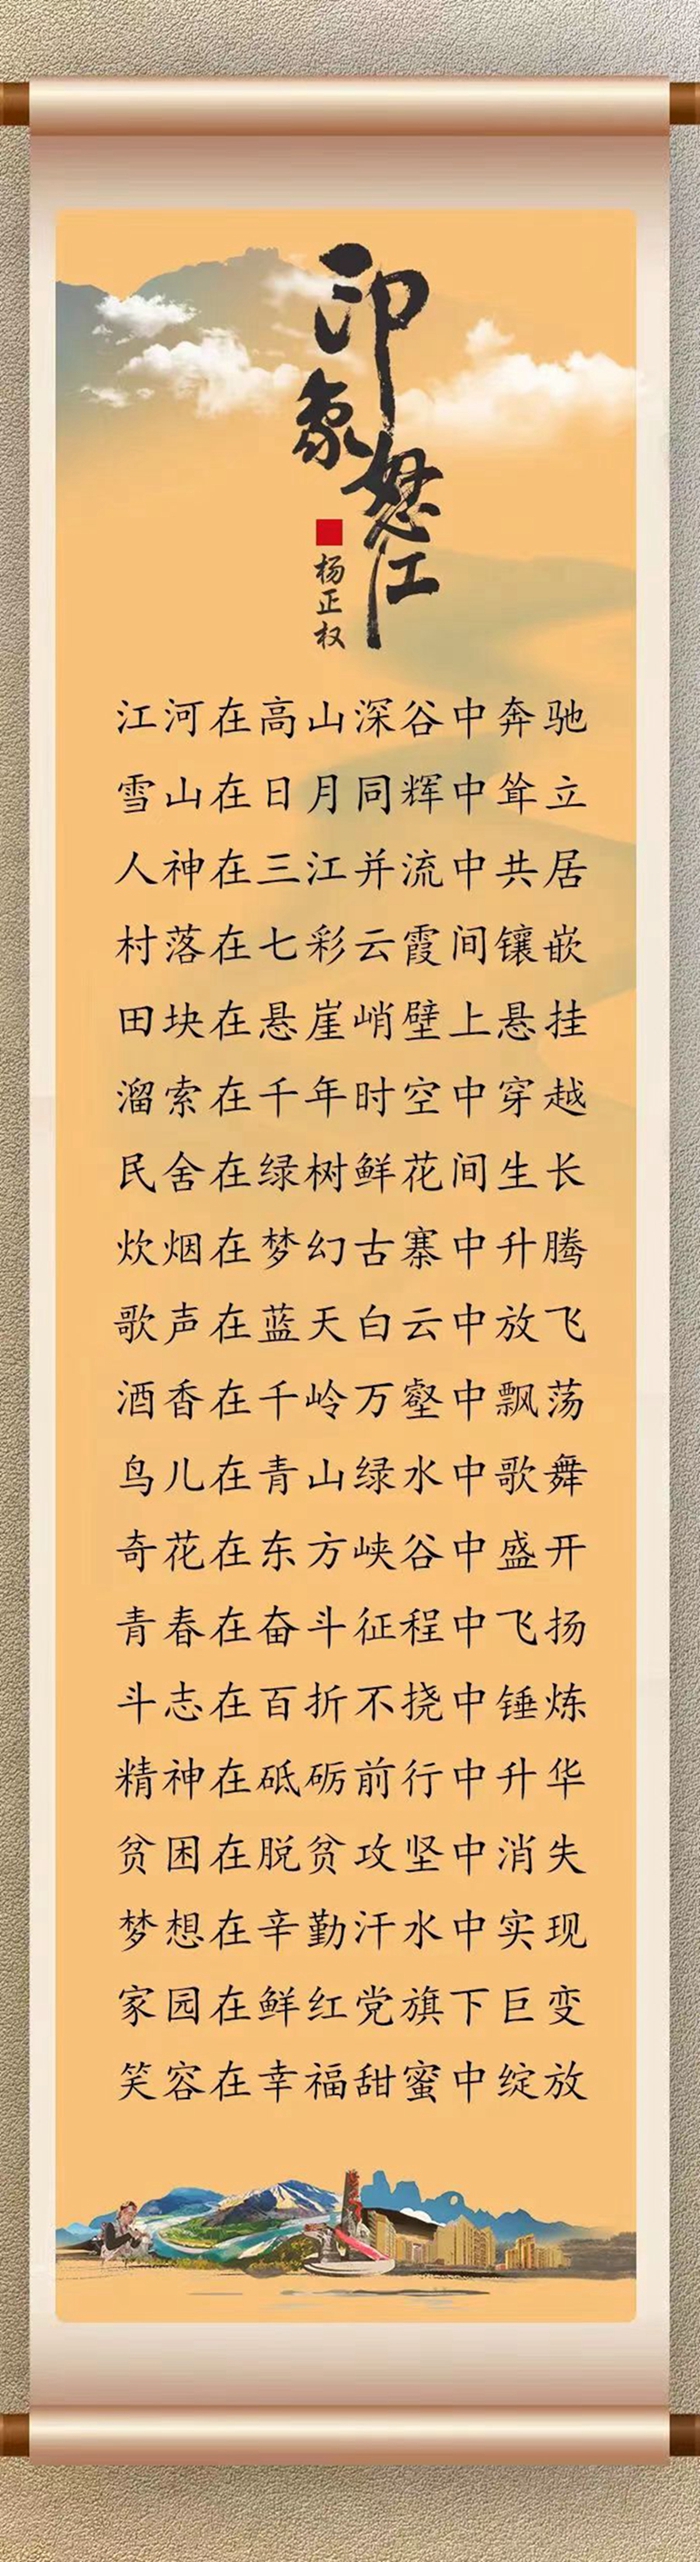 印象怒江
杨正权
江河在高山深谷中奔驰
雪山在日月同辉中耸立
人神在三江并流中共居
村落在七彩云霞间镶嵌
田块在悬崖峭壁上悬挂
溜索在千年时空中穿越
民舍在绿树鲜花间生长
炊烟在梦幻古寨中升腾
歌声在蓝天白云中放飞
酒香在千岭万壑中飘荡
鸟儿在青山绿水中歌舞
奇花在东方峡谷中盛开
青春在奋斗征程中飞扬
斗志在百折不挠中锤炼
精神在砥砺前行中升华
贫困在脱贫攻坚中消失
梦想在辛勤汗水中实现
家园在鲜红党旗下巨变
笑容在幸福甜蜜中绽放